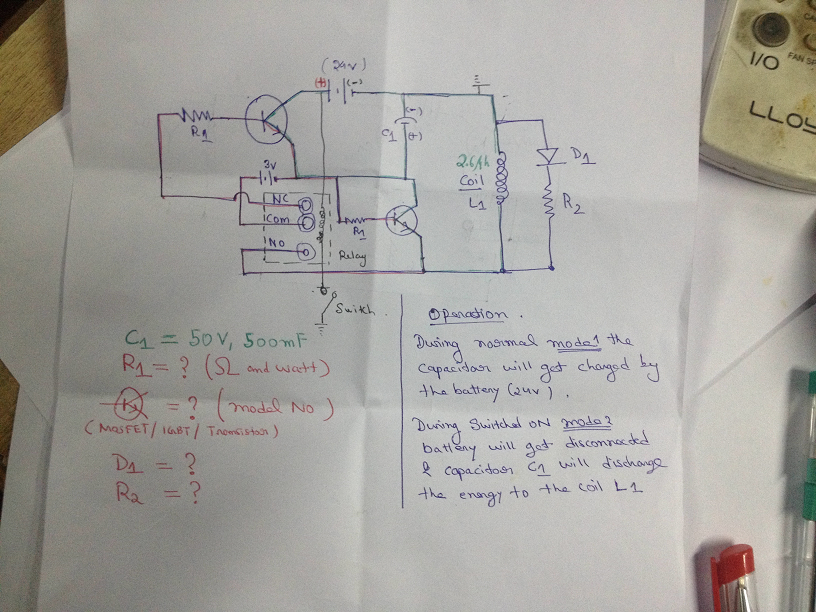 (24v)
(+)
(-)
R1
C1
(-)
(+)
3v
NC
Com
NO
R1
Relay
Switch.
Coil
L1
D1
R2
I/O
FAN SP
LLOY
C1 = 50V, 500mF
R1 = ? (Ω and watt)
= ? (model No)
(MOSFET/IGBT/Transistor)
D1 = ?
R2 = ?
Operation.
During normal mode1 the
capacitor will get charged by
the battery (24v).
During Switched ON mode2
battery will get disconnected
& capacitor C1 will discharge
the energy to the coil L1